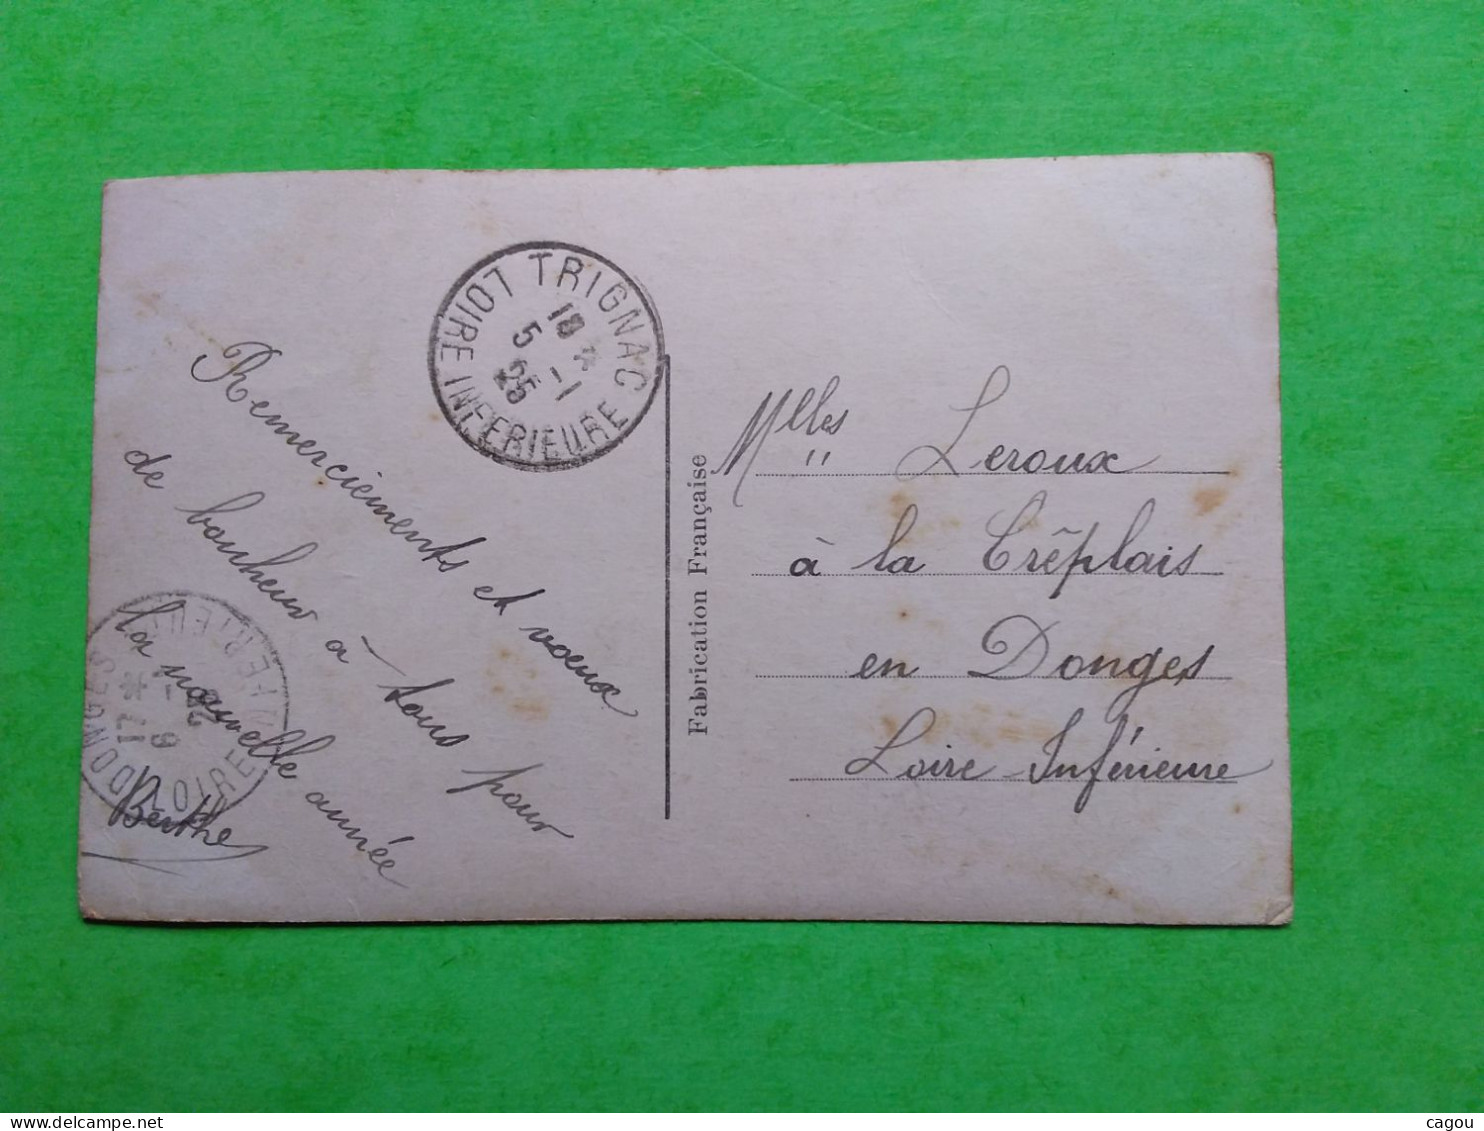 Remerciements et voeux
de bonheur à tous pour
la nouvelle année
Berthe
TRIGNAC
18 *
5 -1
25
LOIRE INFERIEURE
DONGES
17 *
6 -
25
LOIRE INFERIEURE
Fabrication Française
Mlles Leroux
à la Crêplais
en Donges
Loire-Inférieure
cagou